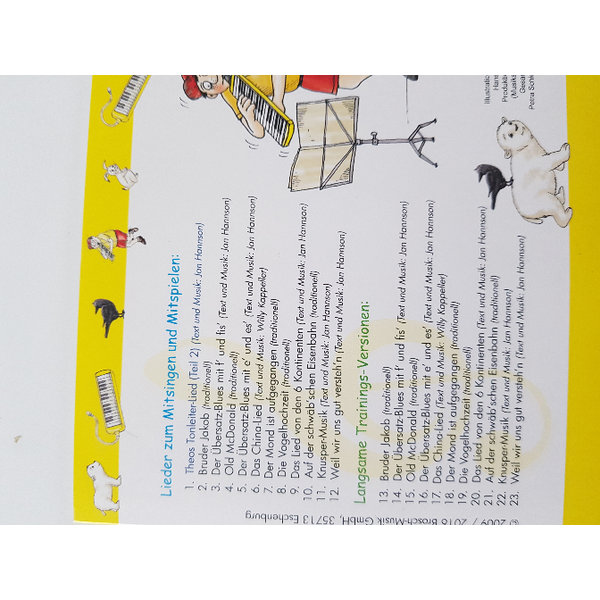 Lieder zum Mitsingen und Mitspielen:
1. Theos Tonleiter-Lied (Teil 2) (Text und Musik: Jan Hannson)
2. Bruder Jakob (traditionell)
3. Der Übersatz-Blues mit f' und fis' (Text und Musik: Jan Hannson)
4. Old McDonald (traditionell)
5. Der Übersatz-Blues mit e' und es' (Text und Musik: Jan Hannson)
6. Das China-Lied (Text und Musik: Willy Kappeller)
7. Der Mond ist aufgegangen (traditionell)
8. Die Vogelhochzeit (traditionell)
9. Das Lied von den 6 Kontinenten (Text und Musik: Jan Hannson)
10. Auf der schwäb'schen Eisenbahn (traditionell)
11. Knusper-Musik (Text und Musik: Jan Hannson)
12. Weil wir uns gut versteh'n (Text und Musik: Jan Hannson)
Langsame Trainings-Versionen:
13. Bruder Jakob (traditionell)
14. Der Übersatz-Blues mit f' und fis' (Text und Musik: Jan Hannson)
15. Old McDonald (traditionell)
16. Der Übersatz-Blues mit e' und es' (Text und Musik: Jan Hannson)
17. Das China-Lied (Text und Musik: Willy Kappeller)
18. Der Mond ist aufgegangen (traditionell)
19. Die Vogelhochzeit (traditionell)
20. Das Lied von den 6 Kontinenten (Text und Musik: Jan Hannson)
21. Auf der schwäb'schen Eisenbahn (traditionell)
22. Knusper-Musik (Text und Musik: Jan Hannson)
23. Weil wir uns gut versteh'n (Text und Musik: Jan Hannson)
© 2009 / 2016 Brosch-Musik GmbH, 35713 Eschenburg
Illustration
Produk
(Musik
Gesa
Petra Sch